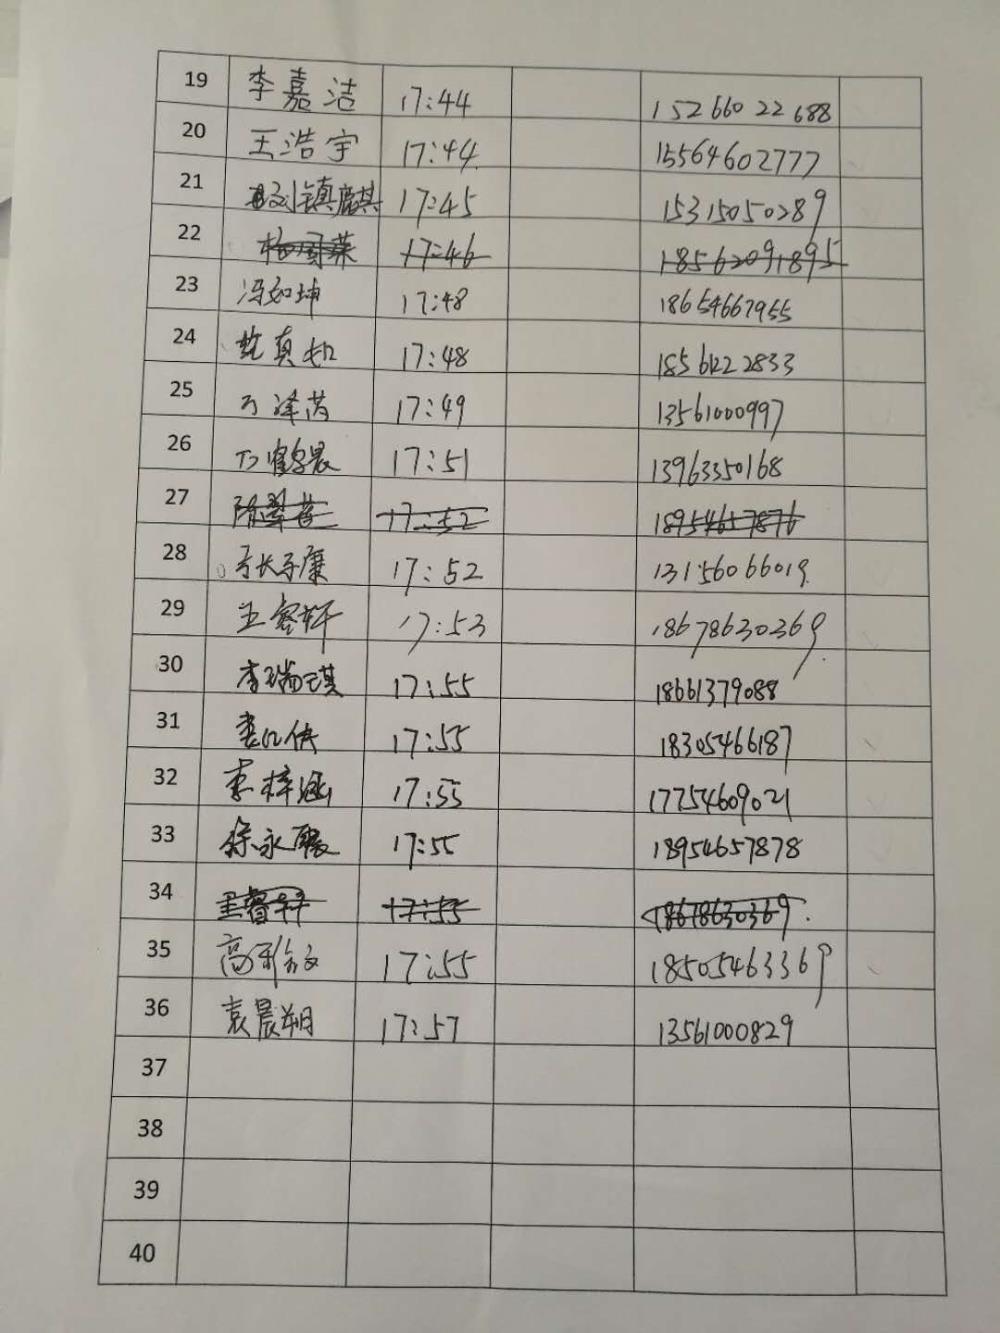 19 李嘉洁 17:44 15266022688
20 王浩宇 17:44 15564602777
21 刘镇麒 17:45 15315050289
22 17:46 18562091895
23 冯如坤 17:48 18654667955
24 17:48 18561222833
25 17:49 13561000997
26 17:51 13963350168
27 17:52 18954657876
28 17:52 13156066019
29 王睿轩 17:53 18678630369
30 李瑞琪 17:55 18661379088
31 17:55 18305466187
32 李梓涵 17:55 17754609021
33 徐永聪 17:55 18954657878
34 王睿轩 17:55 18678630369
35 17:55 18505463369
36 袁晨朔 17:57 13561000829
37
38
39
40